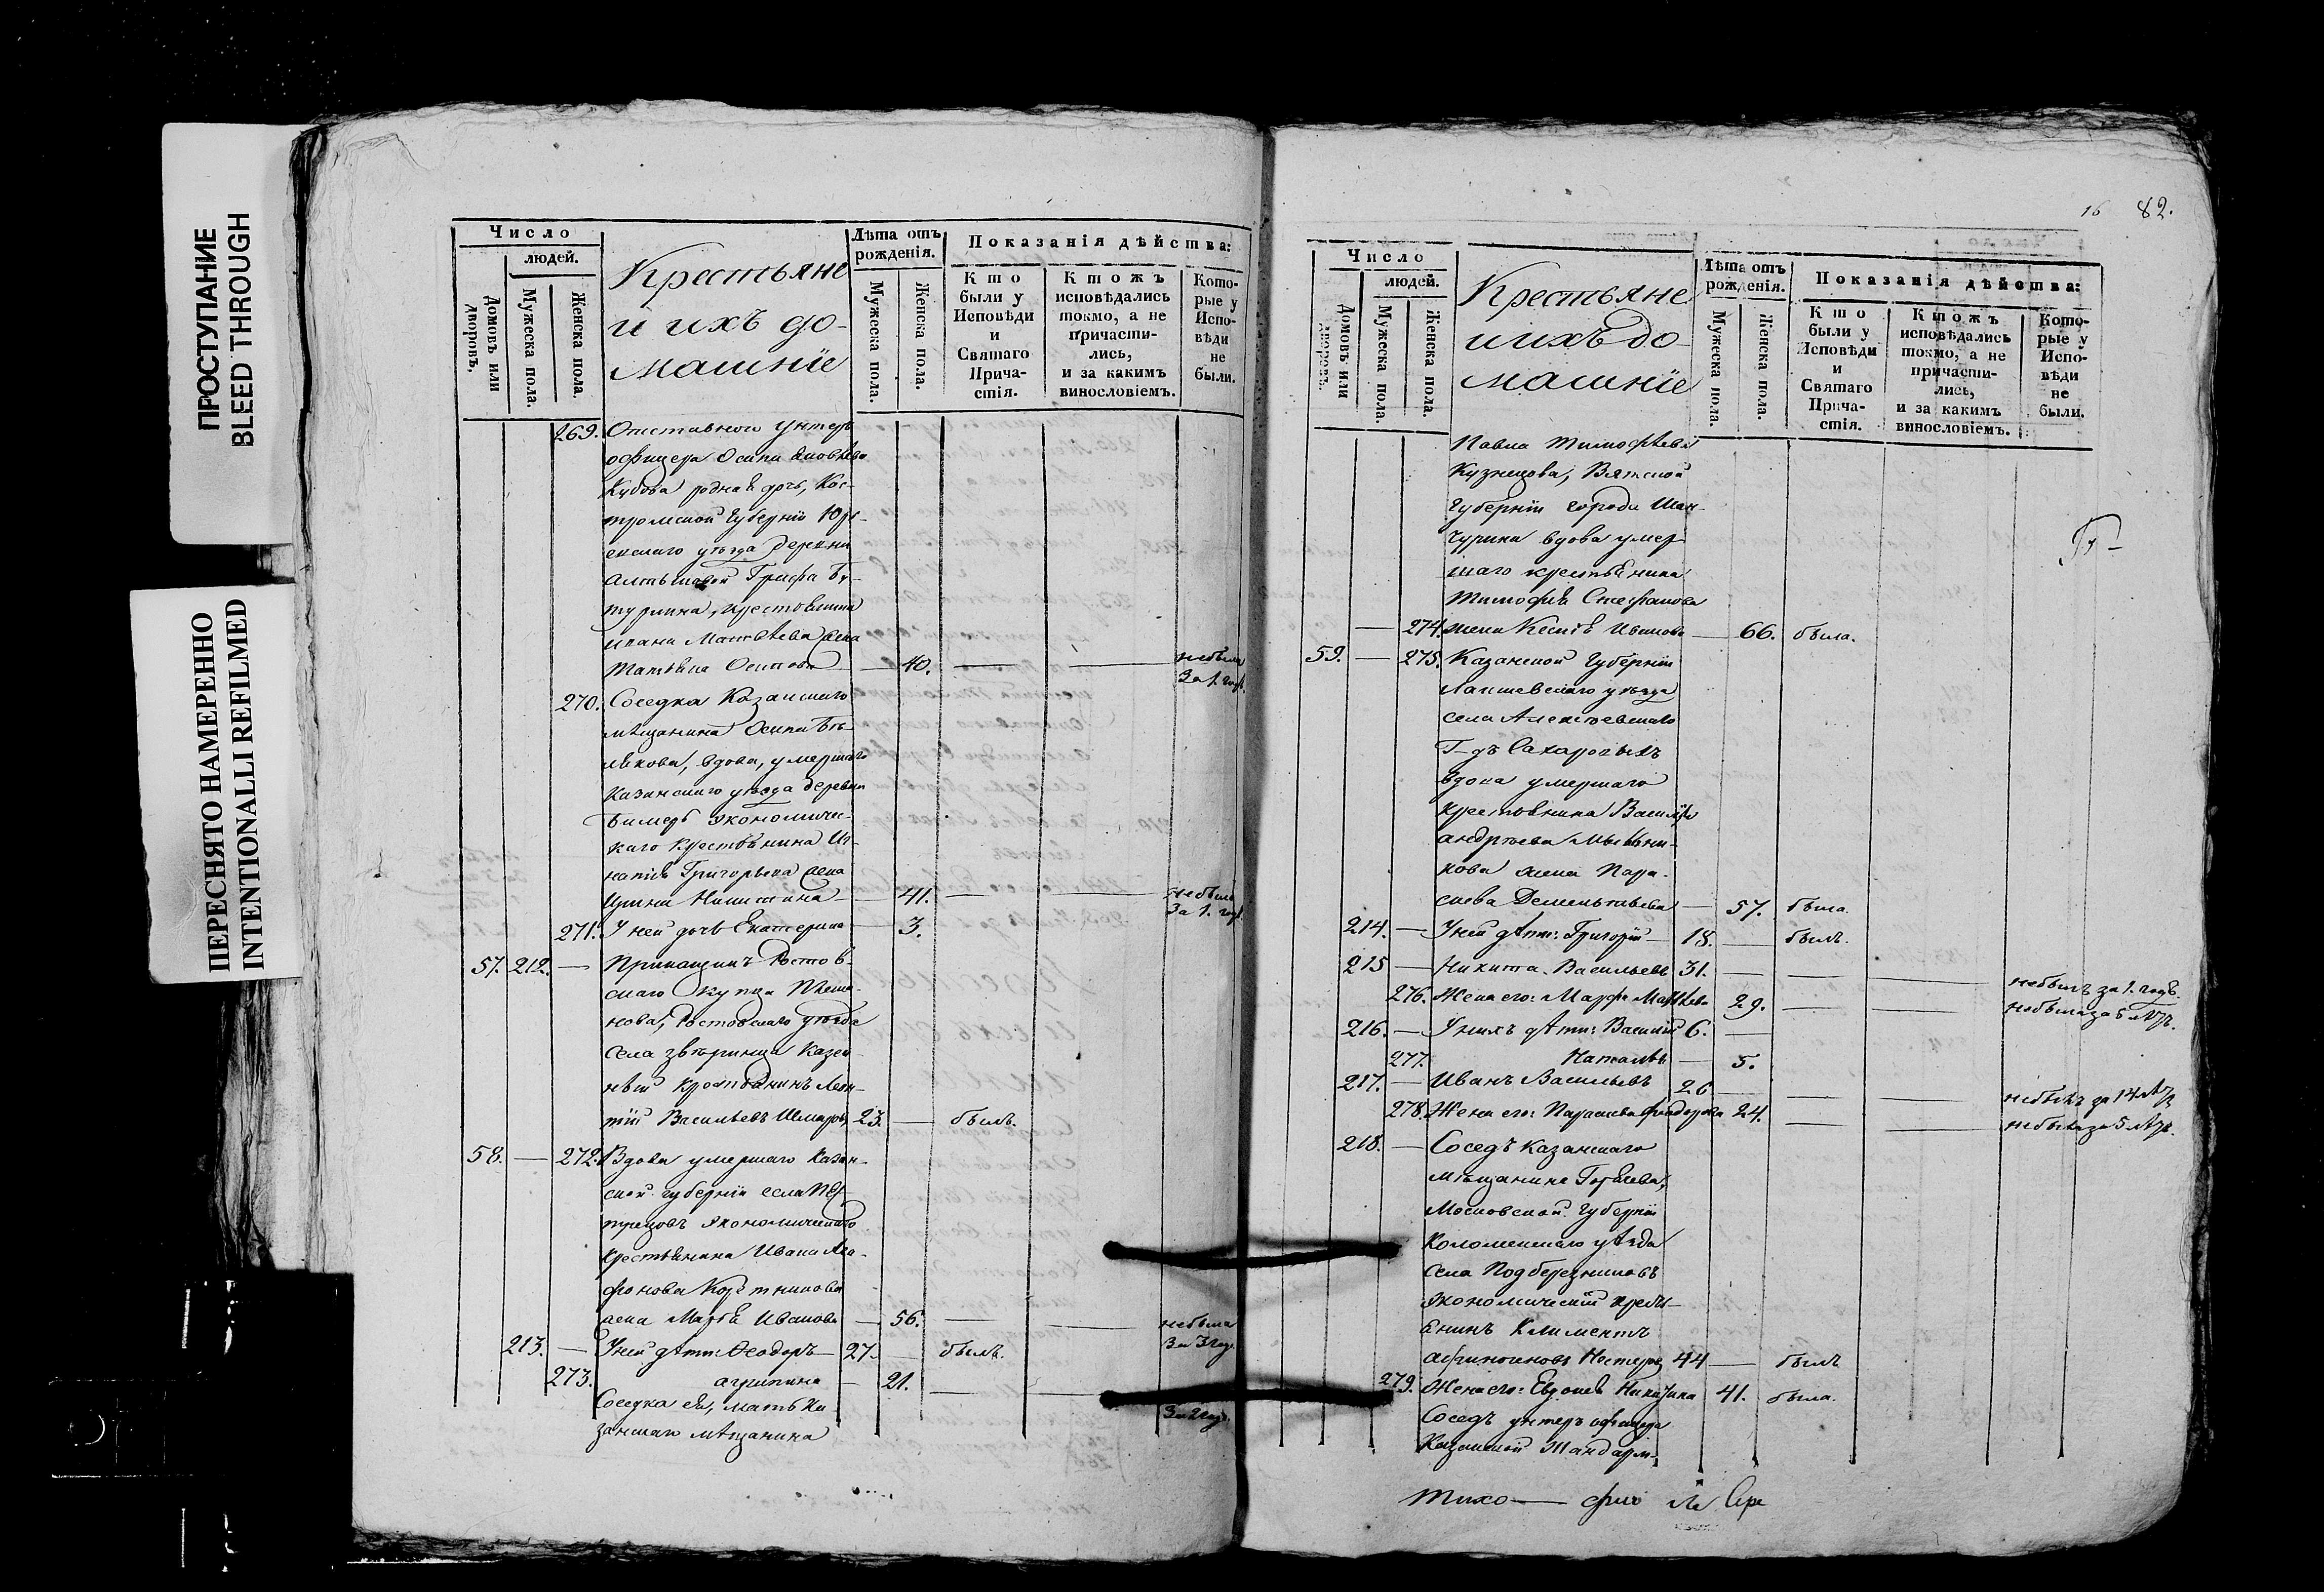 ПРОСТУПАНИЕ
BLEED THROUGH
ПЕРЕСНЯТО НАМЕРЕННО
INTENTIONALLI REFILMED
Число
людей.
Домовъ или дворовъ.
Мужеска пола.
Женска пола.
Крестьяне
и ихъ до-
машнїе
Лѣта отъ
рожденія.
Мужеска пола.
Женска пола.
Показанія дѣйства:
Кто
были у
Исповѣди
и
Святаго
Прича-
стія.
Ктожъ
исповѣдались
токмо, а не
причасти-
лись,
и за какимъ
винословіемъ.
Кото-
рые у
Испо-
вѣди
не
были.
269. Отставнои унтеръ
офицера Осипа
родная дочь, Кос-
тромской Губернїи Юрь-
евскаго уѣзда деревни
Графа Бу-
турлина, крестьянина
Ивана Матвѣева жена
Татьяна Осипова — 40. — — небыла
за 1. годъ.
270. Соседка Казанскаго
мѣщанина Осипа Бѣ-
лякова, вдова, умершаго
Казанскаго уѣзда деревни
экономиче-
скаго крестьянина Иг-
натія Григорьева жена
Ирина Никитина — 41. — — небыла
за 1. годъ.
271. У ней дочь Екатерина — 3.
57. 212. — Прикащикъ Ростов-
скаго купца
Ростовскаго уѣзда
села звѣринца Казен-
ный крестьянинъ Леон-
тїй Васильевъ 23. — былъ.
58. — 272. Вдова умершаго Казан-
ской губернїи села
экономическаго
крестьянина Ивана Ага-
фонова
жена Марѳа Иванова — 56. — — небыла
за 3 года.
213. — У ней дѣти: Ѳеодоръ — 27. — былъ.
273. агрипина — 21. — —
за 2 года.
Соседка ея, мать Ка-
занскаго мѣщанина
16 82.
Число
людей.
Домовъ или дворовъ.
Мужеска пола.
Женска пола.
Крестьяне
и ихъ до-
машнїе
Лѣта отъ
рожденія.
Мужеска пола.
Женска пола.
Показанія дѣйства:
Кто
были у
Исповѣди
и
Святаго
Прича-
стія.
Ктожъ
исповѣдались
токмо, а не
причасти-
лись,
и за какимъ
винословіемъ.
Кото-
рые у
Испо-
вѣди
не
были.
Павла Тимофѣева
Кузнецова, Вятской
Губернїи города Шан-
чурина вдова умер-
шаго крестьянина
Тимофея Стефанова
— 274. жена Ксенія Иванова — 66. была.
59. — 275. Казанской Губернїи
Лаишевскаго уѣзда
села Алексѣевскаго
Г-дъ Сахаровыхъ
вдова умершаго
крестьянина Василья
андрѣева Мыльни-
кова жена Пара-
скева Дементьева — 57. была.
214. — У ней дѣти: Григорій — 18. — былъ.
215 — Никита Васильевъ 31. — — — небылъ за 1. годъ.
276. Жена его: Марфа Матвѣева 29. — — небыла за 5 лѣтъ.
216. — У нихъ дѣти: Василїй 6. —
277. Наталья — 5.
217. — Иванъ Васильевъ 26 — — небылъ за 14 лѣтъ
278. Жена его: Параскева Ѳеодорова 24. — — небыла за 5 лѣтъ.
218. — Соседъ Казанскаго
мѣщанина
Московской Губернїи
Коломенскаго уѣзда
села Подберезниковъ
экономическїй кресть-
янинъ Климентъ
Нестеровъ 44 — былъ
279. Жена его: Евдокія 41. была.
Соседъ унтеръ офицера
Казанской Жандарм-